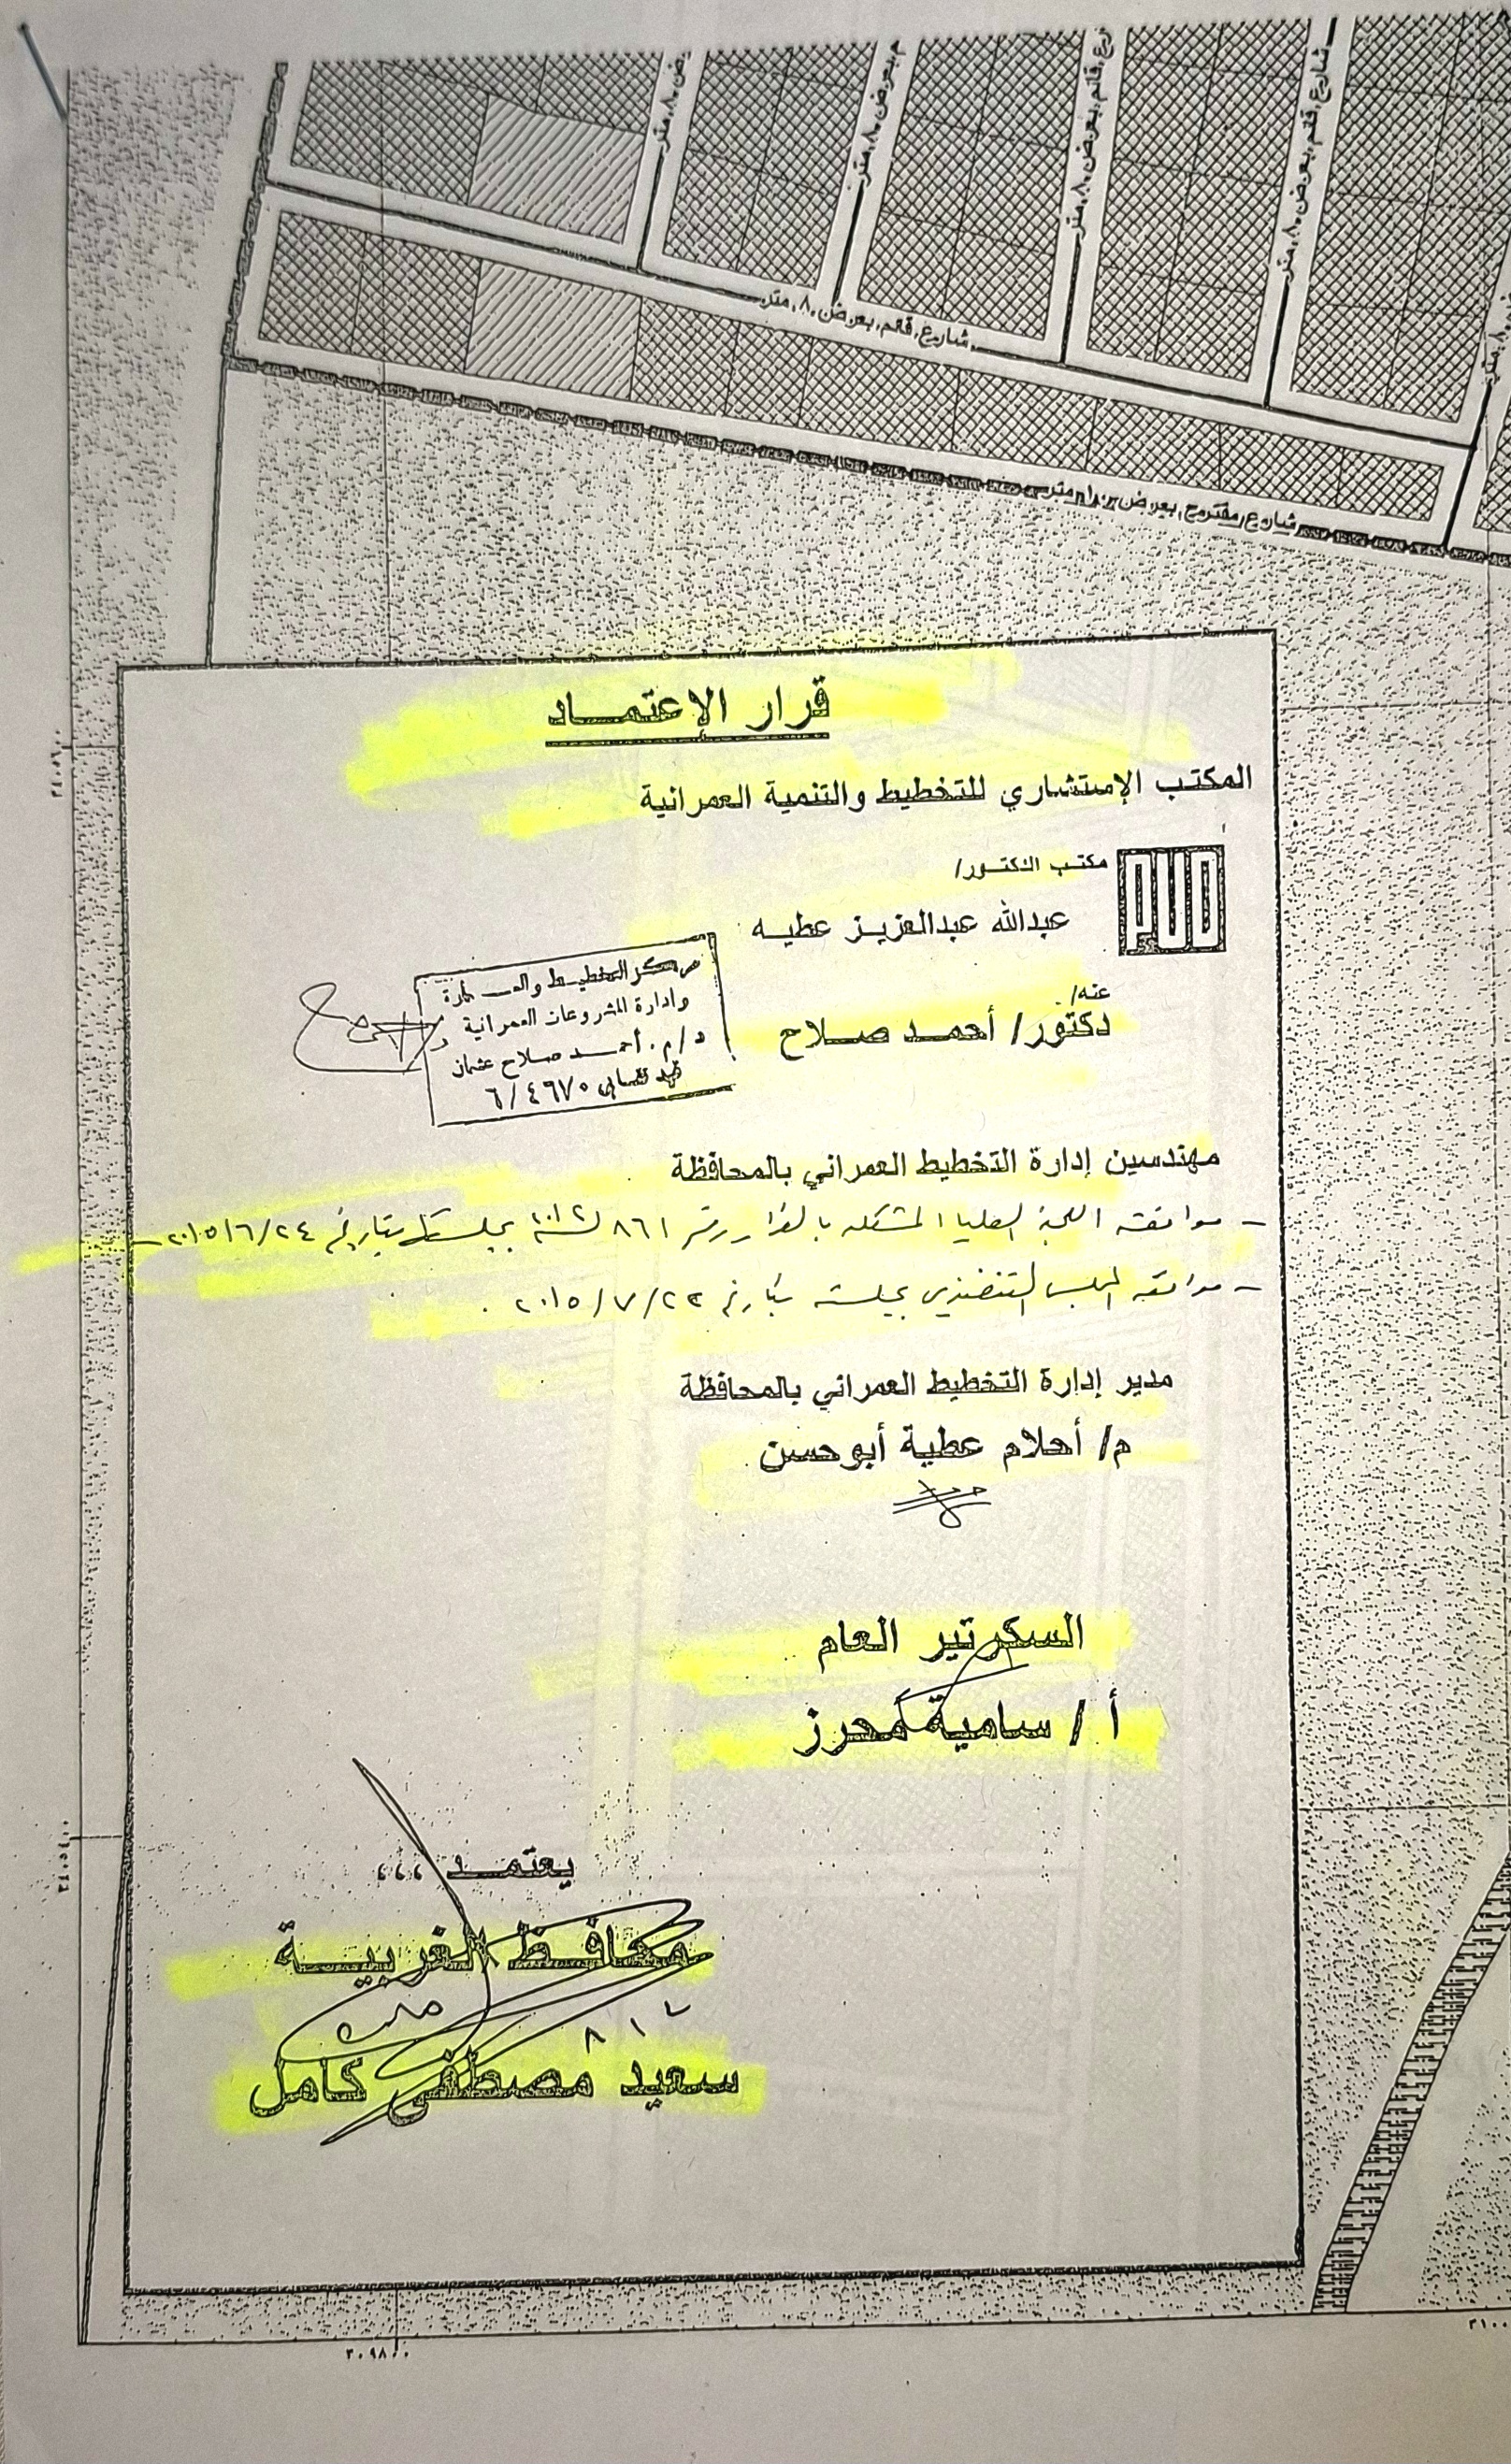 شارع قائم بعرض ٨.٠ متر
شارع قائم بعرض ٨.٠ متر
شارع قائم بعرض ٨.٠ متر
شارع مقترح بعرض ١٠.٠ متر
قرار الإعتمـــاد
المكتب الإستشاري للتخطيط والتنمية العمرانية
PUD
مكتب الدكتـور/
عبدالله عبدالعزيـز عطيـه
عنه/
دكتور/ أحمـد صـلاح
مركز التخطيط والعمارة
وادارة المشروعات العمرانية
د/م. أحمـد صلاح عثمان
٦/٤٩٧٥
مهندسين إدارة التخطيط العمراني بالمحافظة
- موافقة اللجنة العليا المشكلة بالقرار رقم ٨٦١ لسنة ٢٠١٢ بجلستها بتاريخ ٢٠١٥/٦/٢٤
- موافقه المجلس التنفيذي بجلسته بتاريخ ٢٠١٥/٧/٢٢ .
مدير إدارة التخطيط العمراني بالمحافظة
م/ أحلام عطية أبوحسن
السكرتير العام
أ / سامية محرز
يعتمـــد ،،،
محافــظ الغربيــة
سعيد مصطفى كامل
٣٠٩٨٠٠